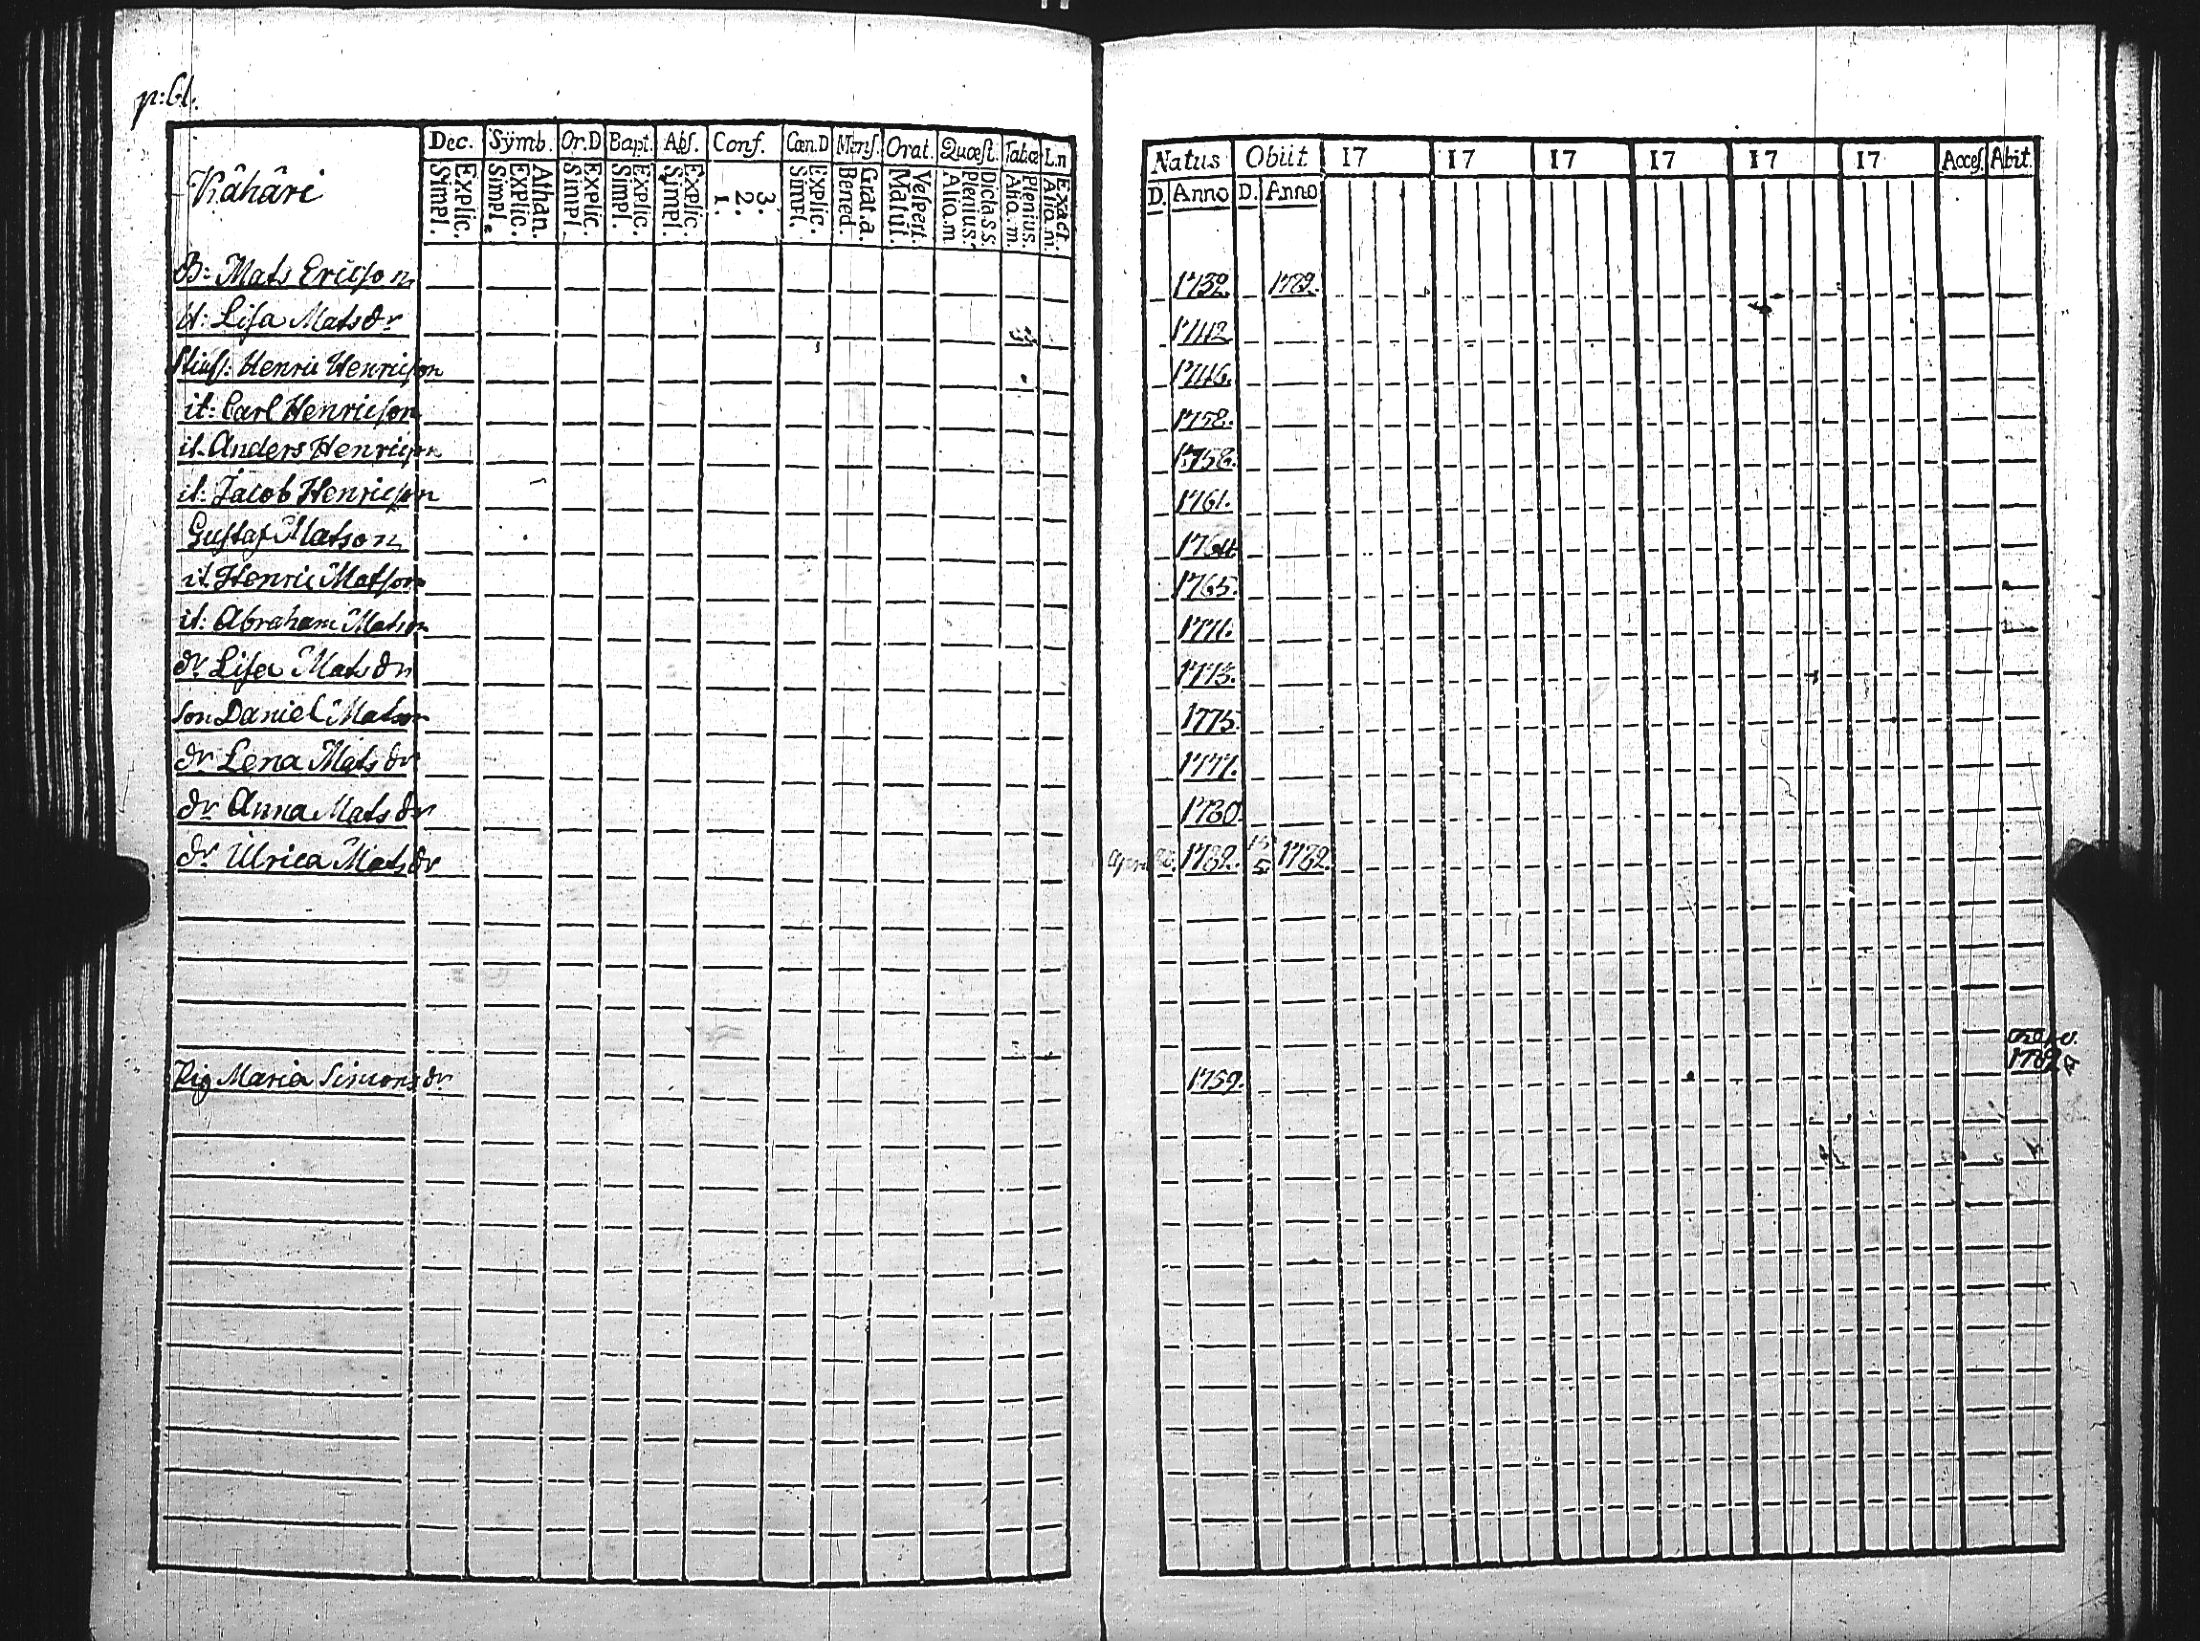 p: 61.
Kåhåri
Dec. Symb. Or.D Bapt. Abs. Conf. Cœn.D Mens. Orat. Quæst. Tab.œ L.n
Explic. Simpl. Athan. Explic. Simpl. Explic. Simpl. Explic. Simpl. Explic. Simpl. 3. 2. 1. Explic. Simpl. Grat.a. Bened. Vesperi. Matut. Dicta.s.s. Plenius. Aliq.m Plenius. Aliq.m. Exact. Aliq.m.
Natus Obiit 17 17 17 17 17 17 Acces. Abit.
D. Anno D. Anno
B: Mats Ericson 1732. 1782.
U: Lisa Matsdr 1742
Henric Henricson 1746.
it: Carl Henricson 1752.
it. Anders Henricson 1758.
it: Jacob Henricson 1761.
Gustaf Matson 1764
it. Henric Matson 1765.
it: Abraham Matson 1771.
dr Lisa Matsdr 1773.
son Daniel Matson 1775.
dr Lena Matsdr 1777.
dr Anna Matsdr 1780.
dr Ulrica Matsdr 1782. 5. 1782.
Pig Maria Simonsdr 1759. 1782